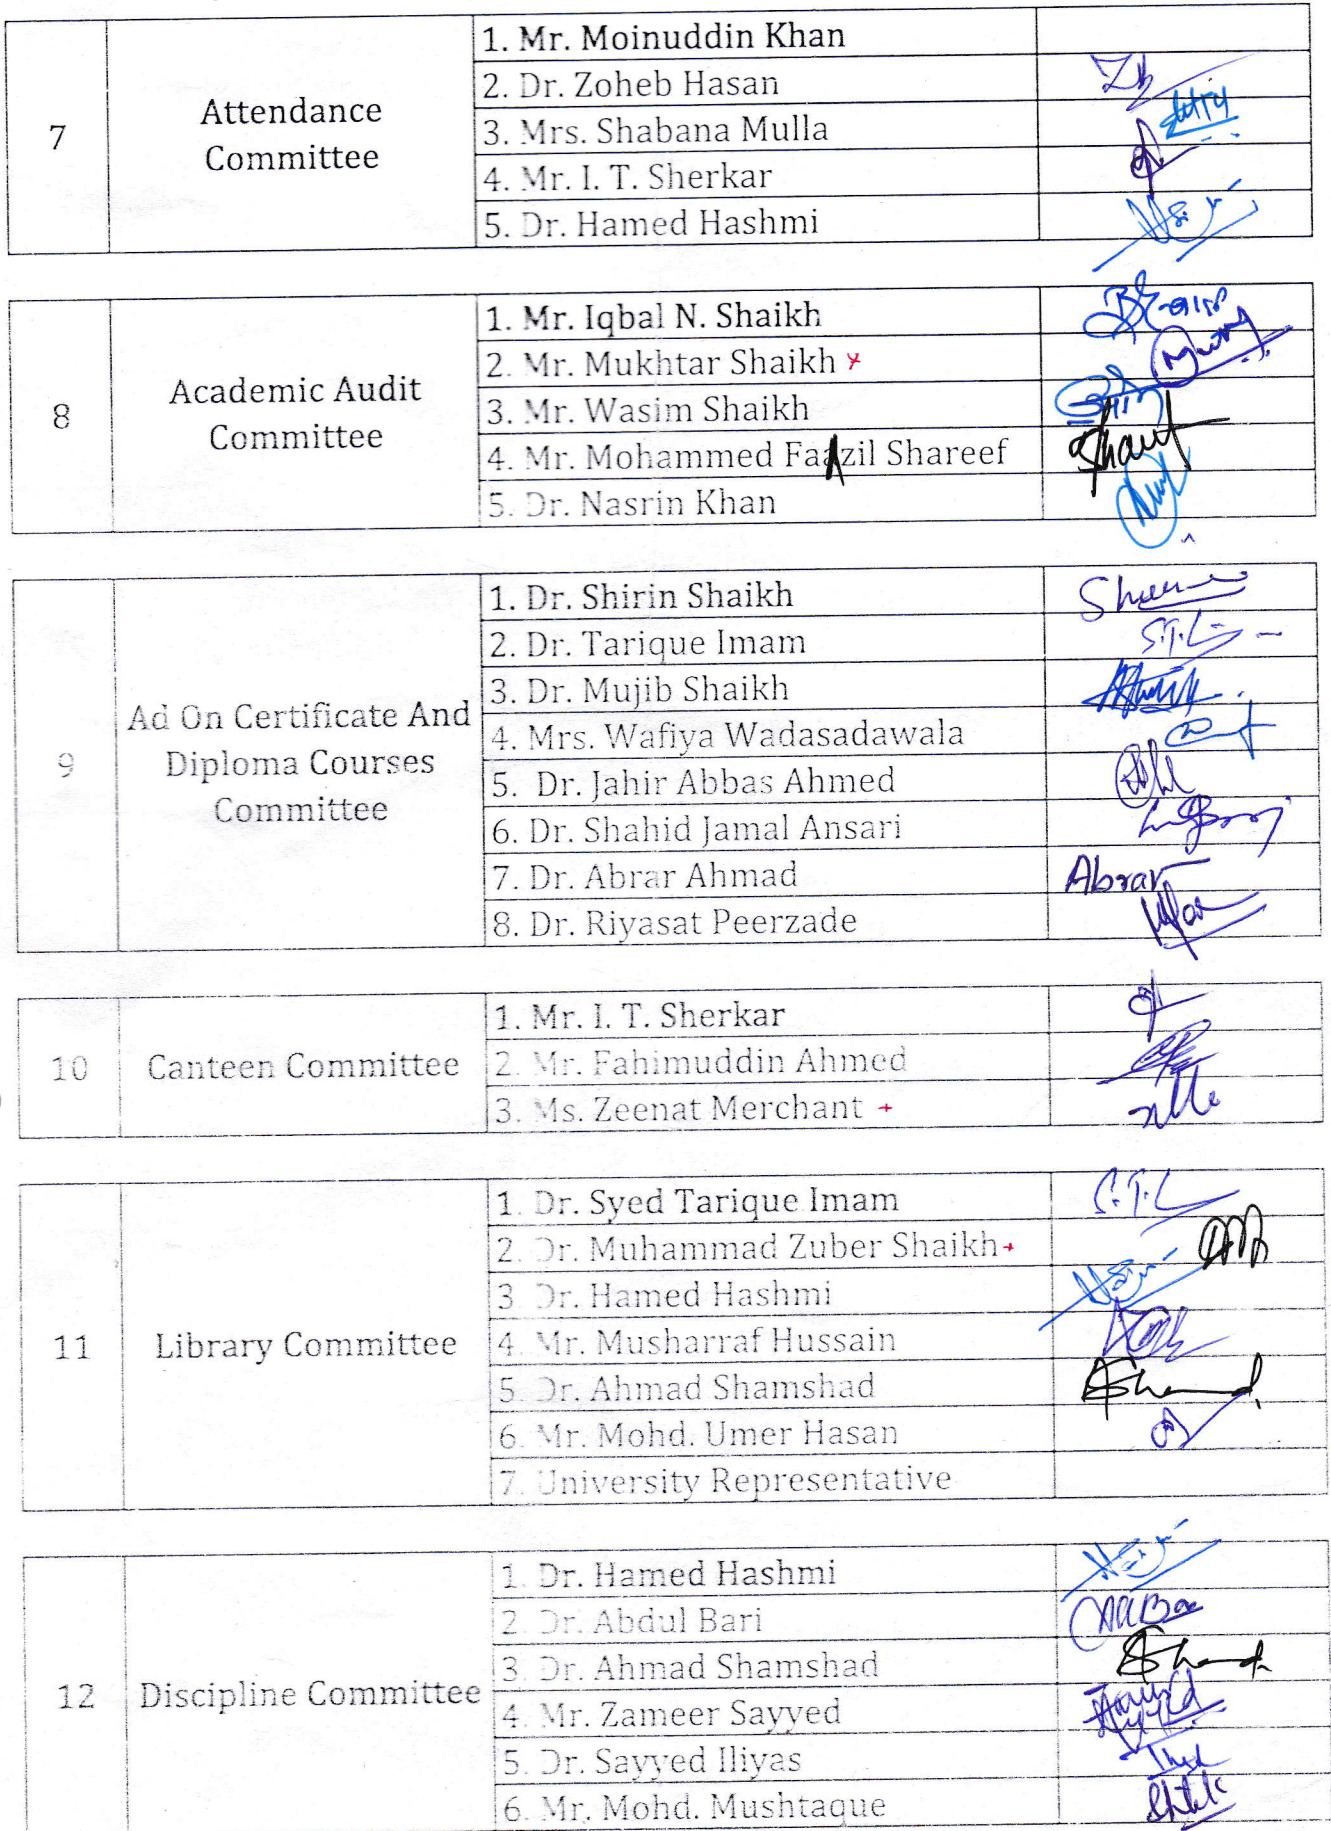 7
Attendance
Committee
1. Mr. Moinuddin Khan
2. Dr. Zoheb Hasan
3. Mrs. Shabana Mulla
4. Mr. I. T. Sherkar
5. Dr. Hamed Hashmi
8
Academic Audit
Committee
1. Mr. Iqbal N. Shaikh
2. Mr. Mukhtar Shaikh
3. Mr. Wasim Shaikh
4. Mr. Mohammed Faazil Shareef
5. Dr. Nasrin Khan
9
Ad On Certificate And
Diploma Courses
Committee
1. Dr. Shirin Shaikh
2. Dr. Tarique Imam
3. Dr. Mujib Shaikh
4. Mrs. Wafiya Wadasadawala
5. Dr. Jahir Abbas Ahmed
6. Dr. Shahid Jamal Ansari
7. Dr. Abrar Ahmad
Abrar
8. Dr. Riyasat Peerzade
10
Canteen Committee
1. Mr. I. T. Sherkar
2. Mr. Fahimuddin Ahmed
3. Ms. Zeenat Merchant
11
Library Committee
1. Dr. Syed Tarique Imam
2. Dr. Muhammad Zuber Shaikh
3. Dr. Hamed Hashmi
4. Mr. Musharraf Hussain
5. Dr. Ahmad Shamshad
6. Mr. Mohd. Umer Hasan
7. University Representative
12
Discipline Committee
1. Dr. Hamed Hashmi
2. Dr. Abdul Bari
3. Dr. Ahmad Shamshad
4. Mr. Zameer Sayyed
5. Dr. Sayyed Iliyas
6. Mr. Mohd. Mushtaque